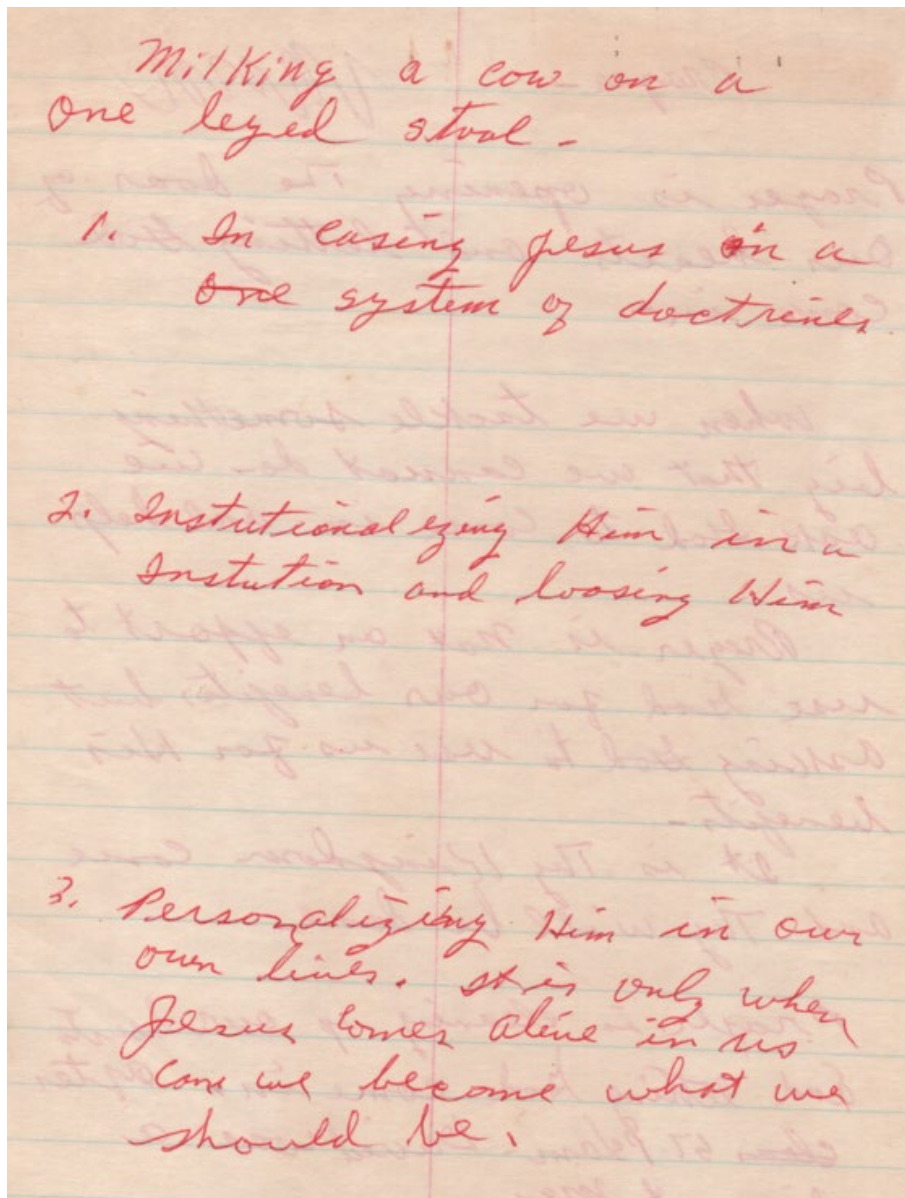 Milking a cow on a
One leged stool -
1. In casing Jesus in a
One system of doctrines
2. Instutionalizing Him in a
Instution and loosing Him
3. Personalizing Him in our
own lives. It is only when
Jesus comes alive in us
can we become what we
should be.